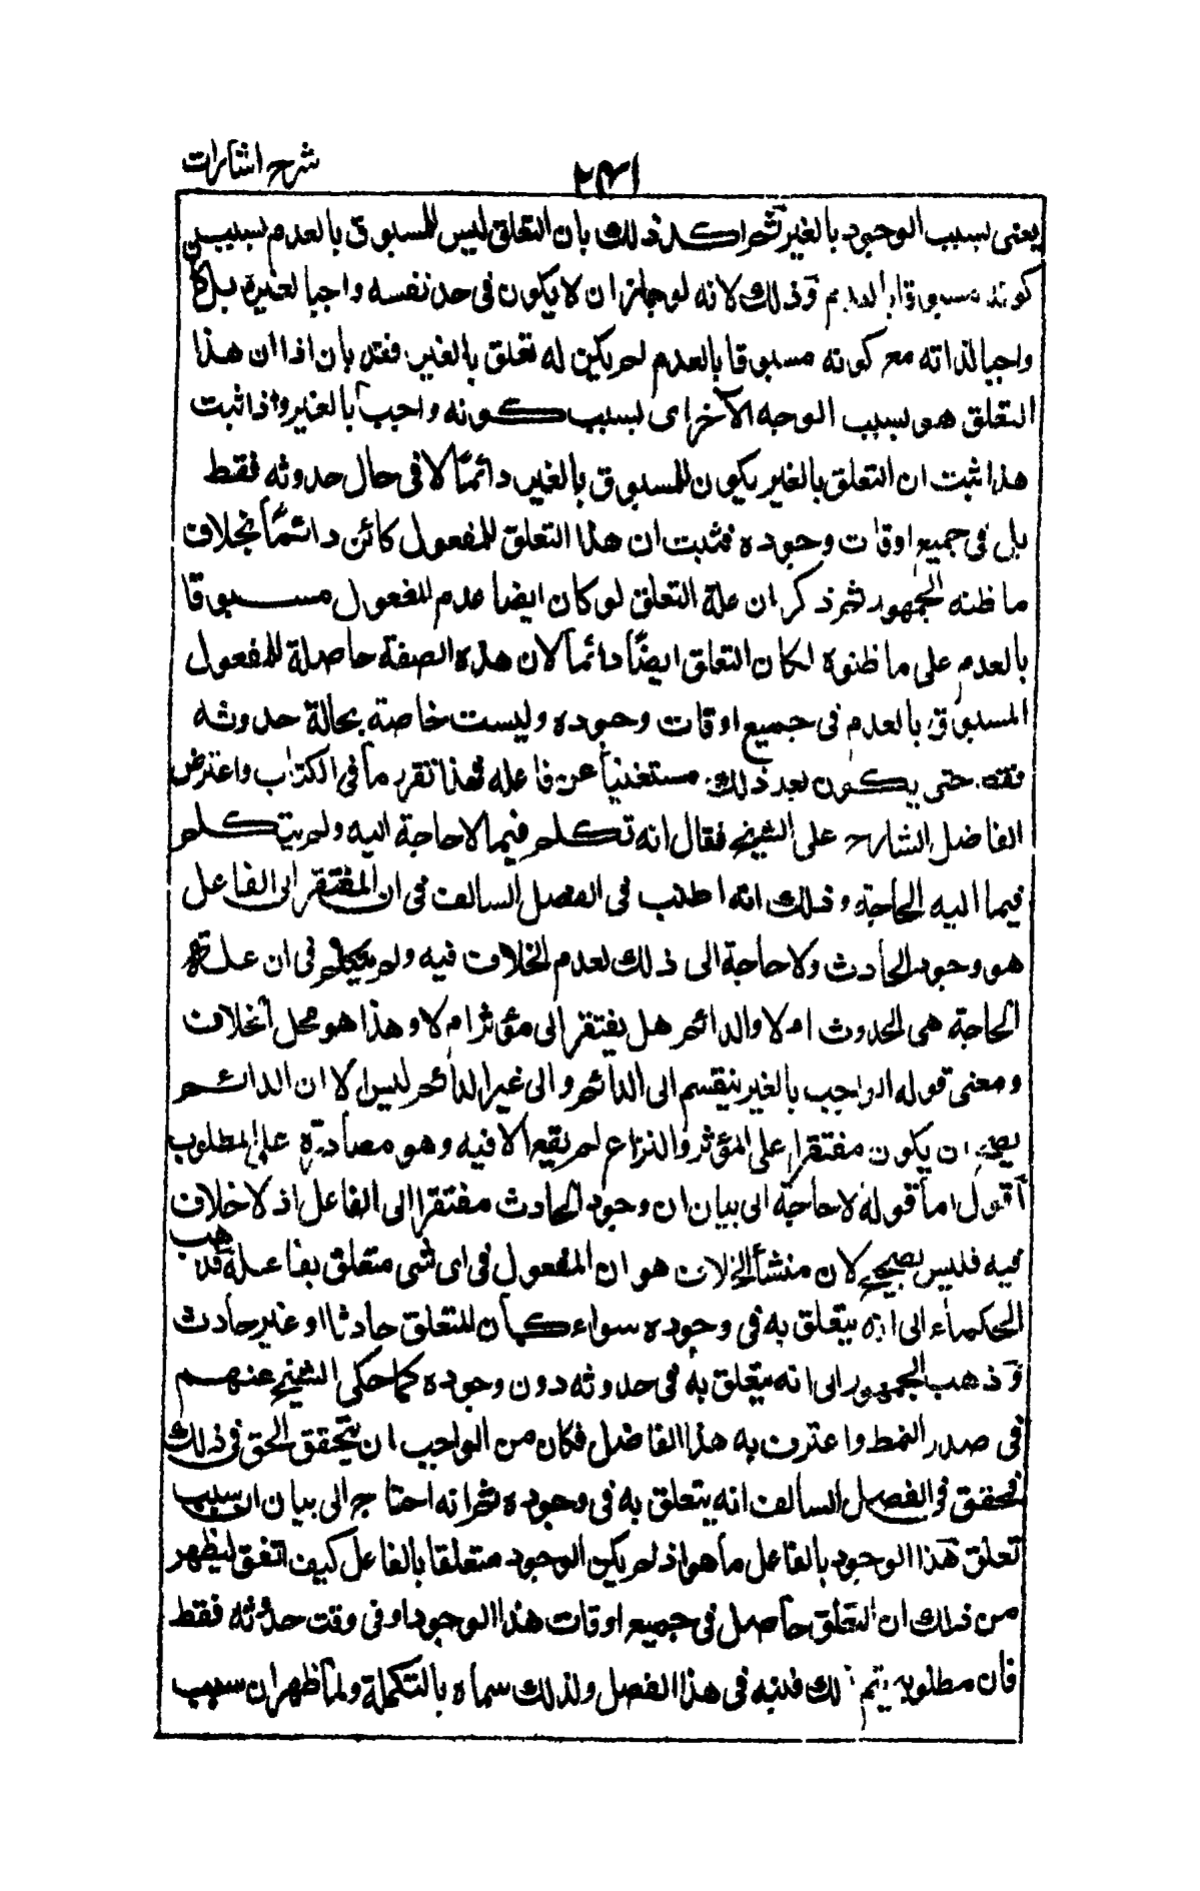 شرح اشارات
٢٤١
يعنى بسبب الوجود بالغير ثم اكد ذلك بان التعلق ليس للمسبوق بالعدم بسبب
كونه مسبوقا بالعدم وذلك لانه لو جاز ان لا يكون فى حد نفسه واجبا لغيره بل كان
واجبا لذاته مع كونه مسبوقا بالعدم لم يكن له تعلق بالغير فقد بان اذا ان هذا
التعلق هو بسبب الوجه الآخر اى بسبب كونه واجبا بالغير واذا ثبت
هذا ثبت ان التعلق بالغير يكون للمسبوق بالغير دائمًا لا فى حال حدوثه فقط
بل فى جميع اوقات وجوده فثبت ان هذا التعلق للمفعول كائن دائمًا بخلاف
ما ظنه الجمهور ثم ذكر ان علة التعلق لو كان ايضا عدم للفعول مسبوقا
بالعدم على ما ظنوه لكان التعلق ايضًا دائما لان هذه الصفة حاصلة للمفعول
المسبوق بالعدم فى جميع اوقات وجوده وليست خاصة بحالة حدوثه
فقط حتى يكون بعد ذلك مستغنيا عن فاعله فهذا تقرير ما فى الكتاب واعترض
الفاضل الشارح على الشيخ فقال انه تكلم فيما لا حاجة اليه ولم يتكلم
فيما اليه الحاجة وذلك انه اطنب فى الفصل السالف فى ان المفتقر الى الفاعل
هو وجود الحادث ولا حاجة الى ذلك لعدم الخلاف فيه ولم يتكلم فى ان علة
الحاجة هى الحدوث ام لا والدائم هل يفتقر الى مؤثر ام لا وهذا هو محل الخلاف
ومعنى قوله الواجب بالغير ينقسم الى الدائم والى غير الدائم ليس الا ان الدائم
يصح ان يكون مفتقرا على المؤثر والنزاع لم يقع الا فيه وهو مصادرة على المطلوب
اقول اما قوله لا حاجة الى بيان ان وجود الحادث مفتقرا الى الفاعل اذ لا خلاف
فيه فليس بصحيح لان منشأ الخلاف هو ان المفعول فى اى شى متعلق بفاعله فذهب
الحكماء الى انه يتعلق به فى وجوده سواء كان للتعلق حادثا او غير حادث
وذهب الجمهور الى انه يتعلق به فى حدوثه دون وجوده كما حكى الشيخ عنهم
فى صدر النمط واعترف به هذا الفاضل فكان من الواجب ان يتحقق الحق فى ذلك
فحقق فى الفصل السالف انه يتعلق به فى وجوده ثم انه احتاج الى بيان ان سبب
تعلق هذا الوجود بالفاعل ما هو اذ لم يكن الوجود متعلقا بالفاعل كيف اتفق ليظهر
من ذلك ان التعلق حاصل فى جميع اوقات هذا الوجود او فى وقت حدوثه فقط
فان مطلوبه يتم بذلك فبينه فى هذا الفصل ولذلك سماه بالتكملة ولما ظهر ان سبب